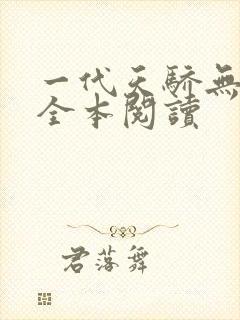 一代天驕無
全本閱讀
君落舞